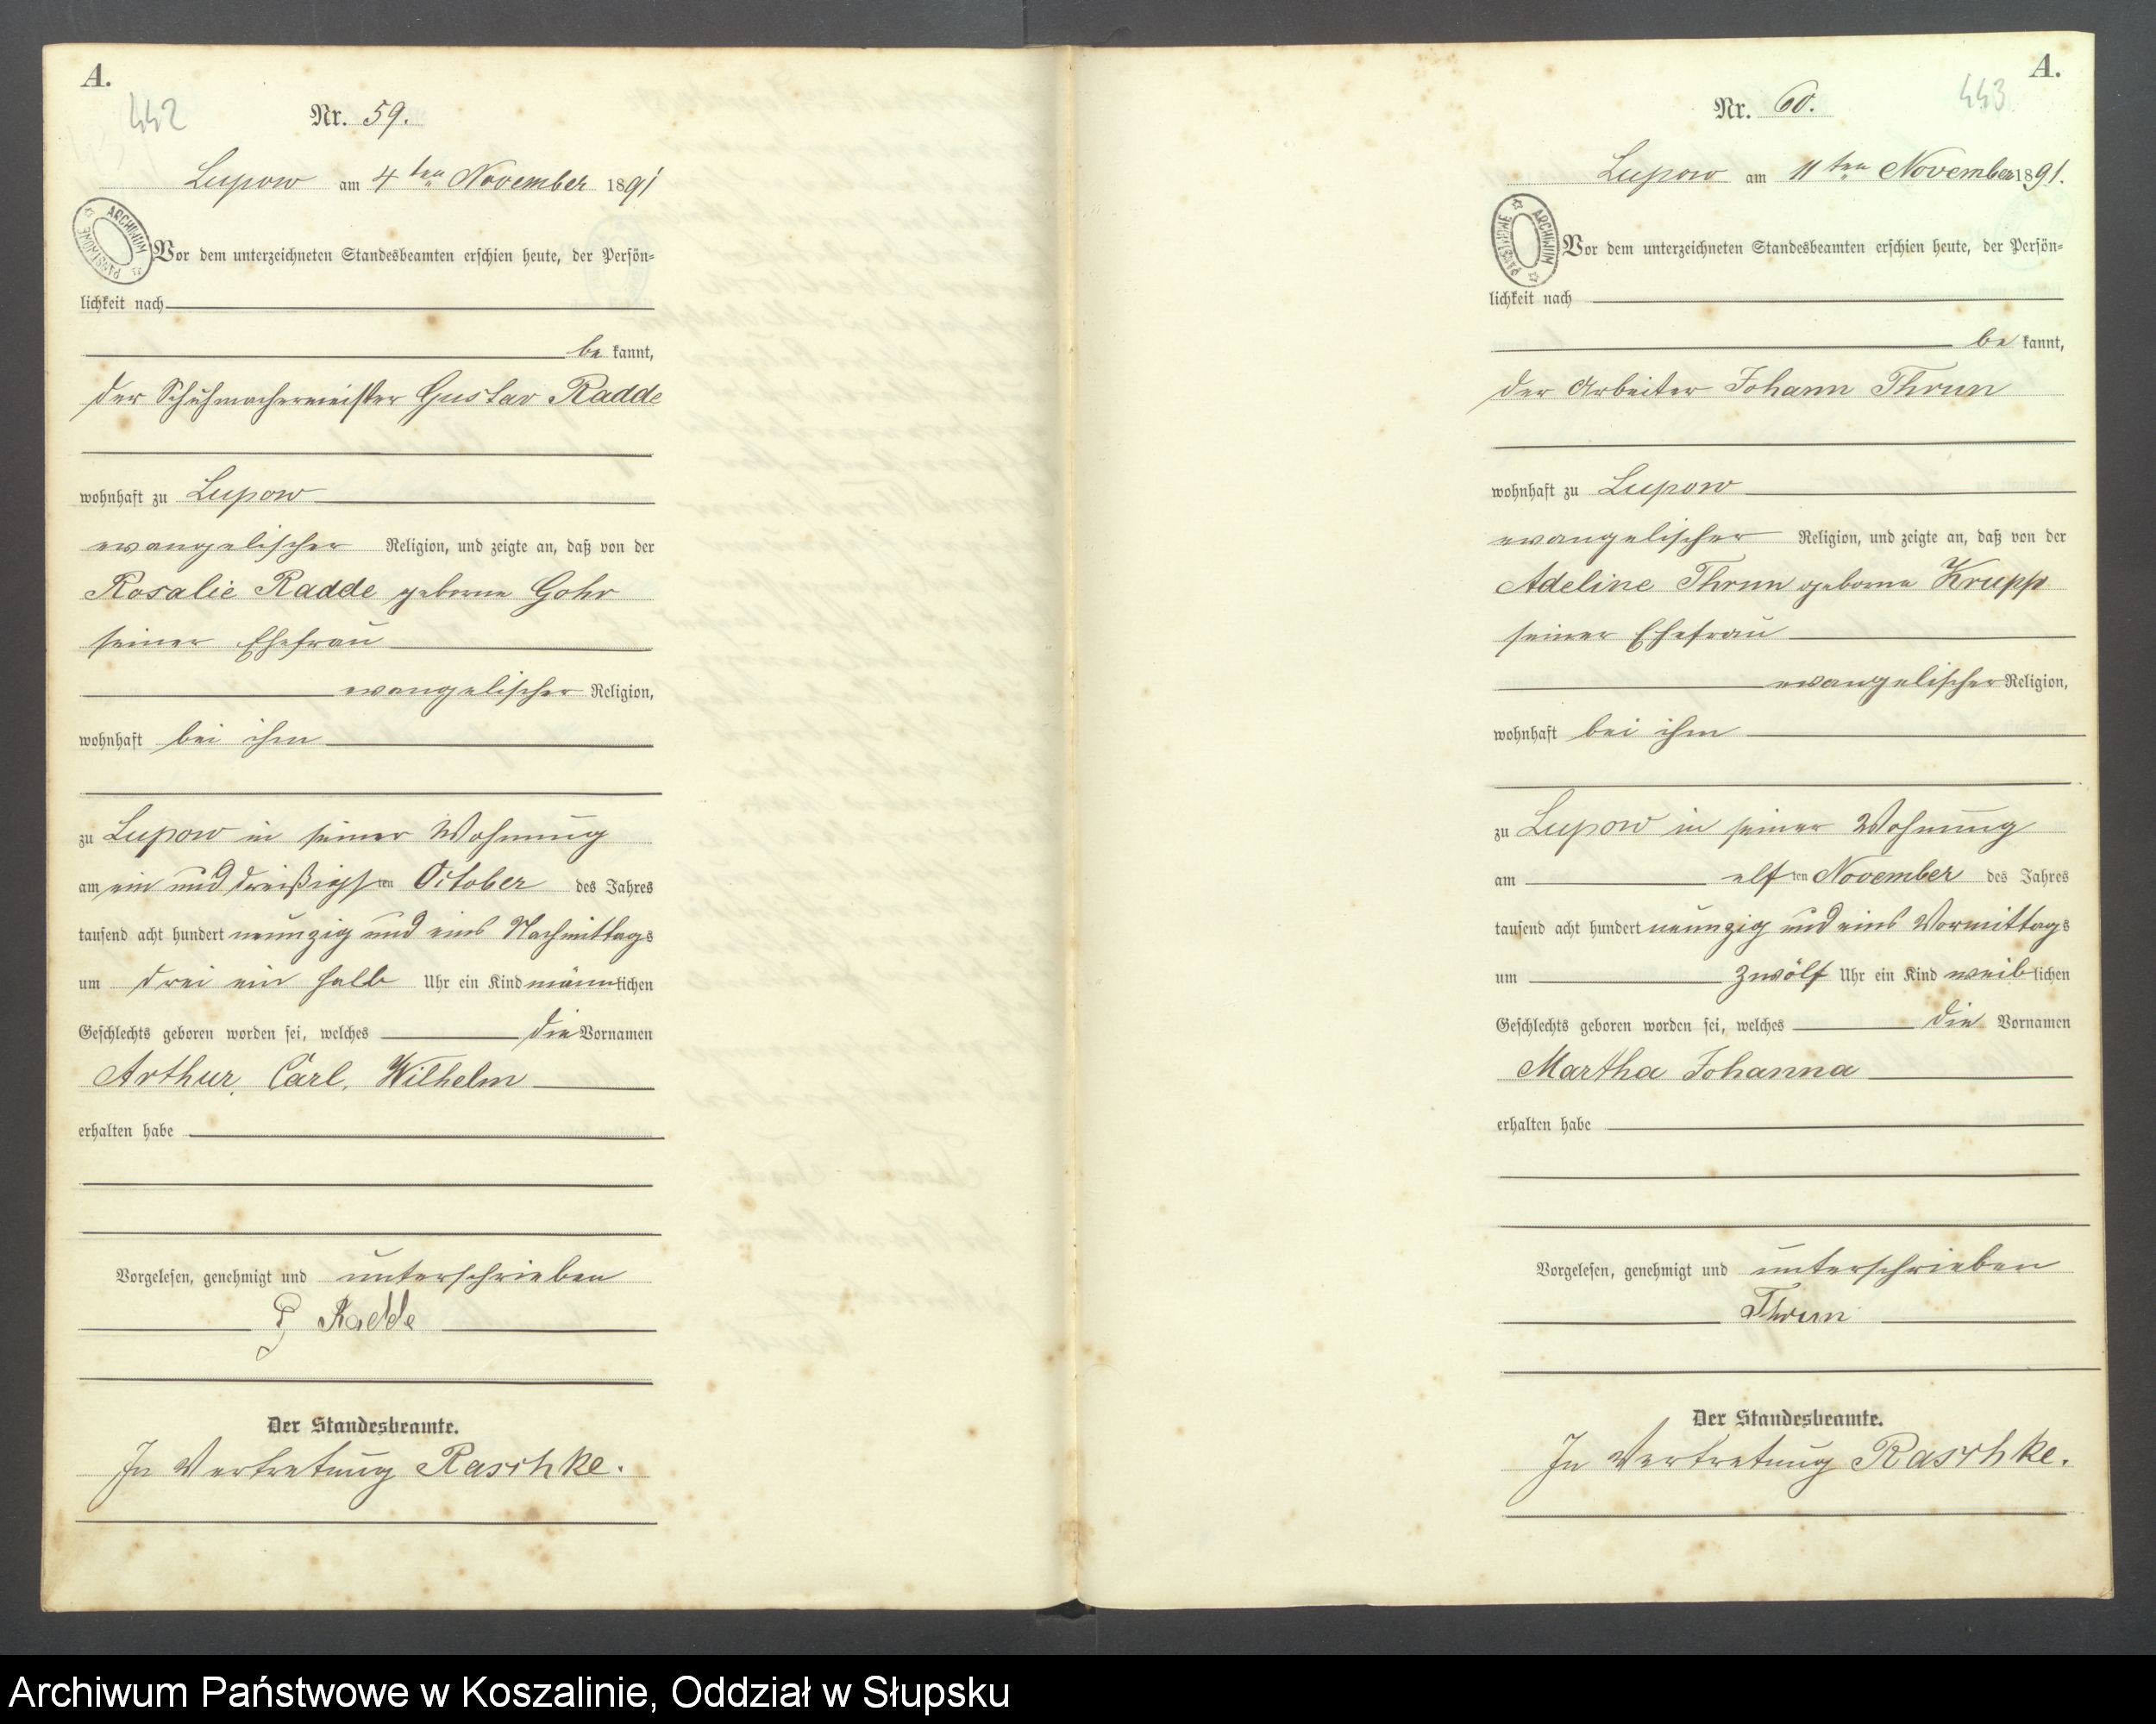 A.
442
Nr. 59.
Lupow am 4ten November 1891
ARCHIWUM PAŃSTWOWE
Vor dem unterzeichneten Standesbeamten erschien heute, der Persön-
lichkeit nach
bekannt,
der Schuhmachermeister Gustav Radde
wohnhaft zu Lupow
evangelischer Religion, und zeigte an, daß von der
Rosalie Radde geborne Gohr
seiner Ehefrau
evangelischer Religion,
wohnhaft bei ihm
zu Lupow in seiner Wohnung
am ein und dreißigsten October des Jahres
tausend acht hundert neunzig und eins Nachmittags
um drei ein halb Uhr ein Kind männlichen
Geschlechts geboren worden sei, welches die Vornamen
Arthur, Carl, Wilhelm
erhalten habe
Vorgelesen, genehmigt und unterschrieben
G Radde
Der Standesbeamte.
In Vertretung Raschke.
A.
443
Nr. 60.
Lupow am 11ten November 1891.
ARCHIWUM PAŃSTWOWE
Vor dem unterzeichneten Standesbeamten erschien heute, der Persön-
lichkeit nach
bekannt,
der Arbeiter Johann Thrun
wohnhaft zu Lupow
evangelischer Religion, und zeigte an, daß von der
Adeline Thrun geborne Krupp
seiner Ehefrau
evangelischer Religion,
wohnhaft bei ihm
zu Lupow in seiner Wohnung
am elften November des Jahres
tausend acht hundert neunzig und eins Vormittags
um zwölf Uhr ein Kind weiblichen
Geschlechts geboren worden sei, welches die Vornamen
Martha Johanna
erhalten habe
Vorgelesen, genehmigt und unterschrieben
Thrun
Der Standesbeamte.
In Vertretung Raschke.
Archiwum Państwowe w Koszalinie, Oddział w Słupsku